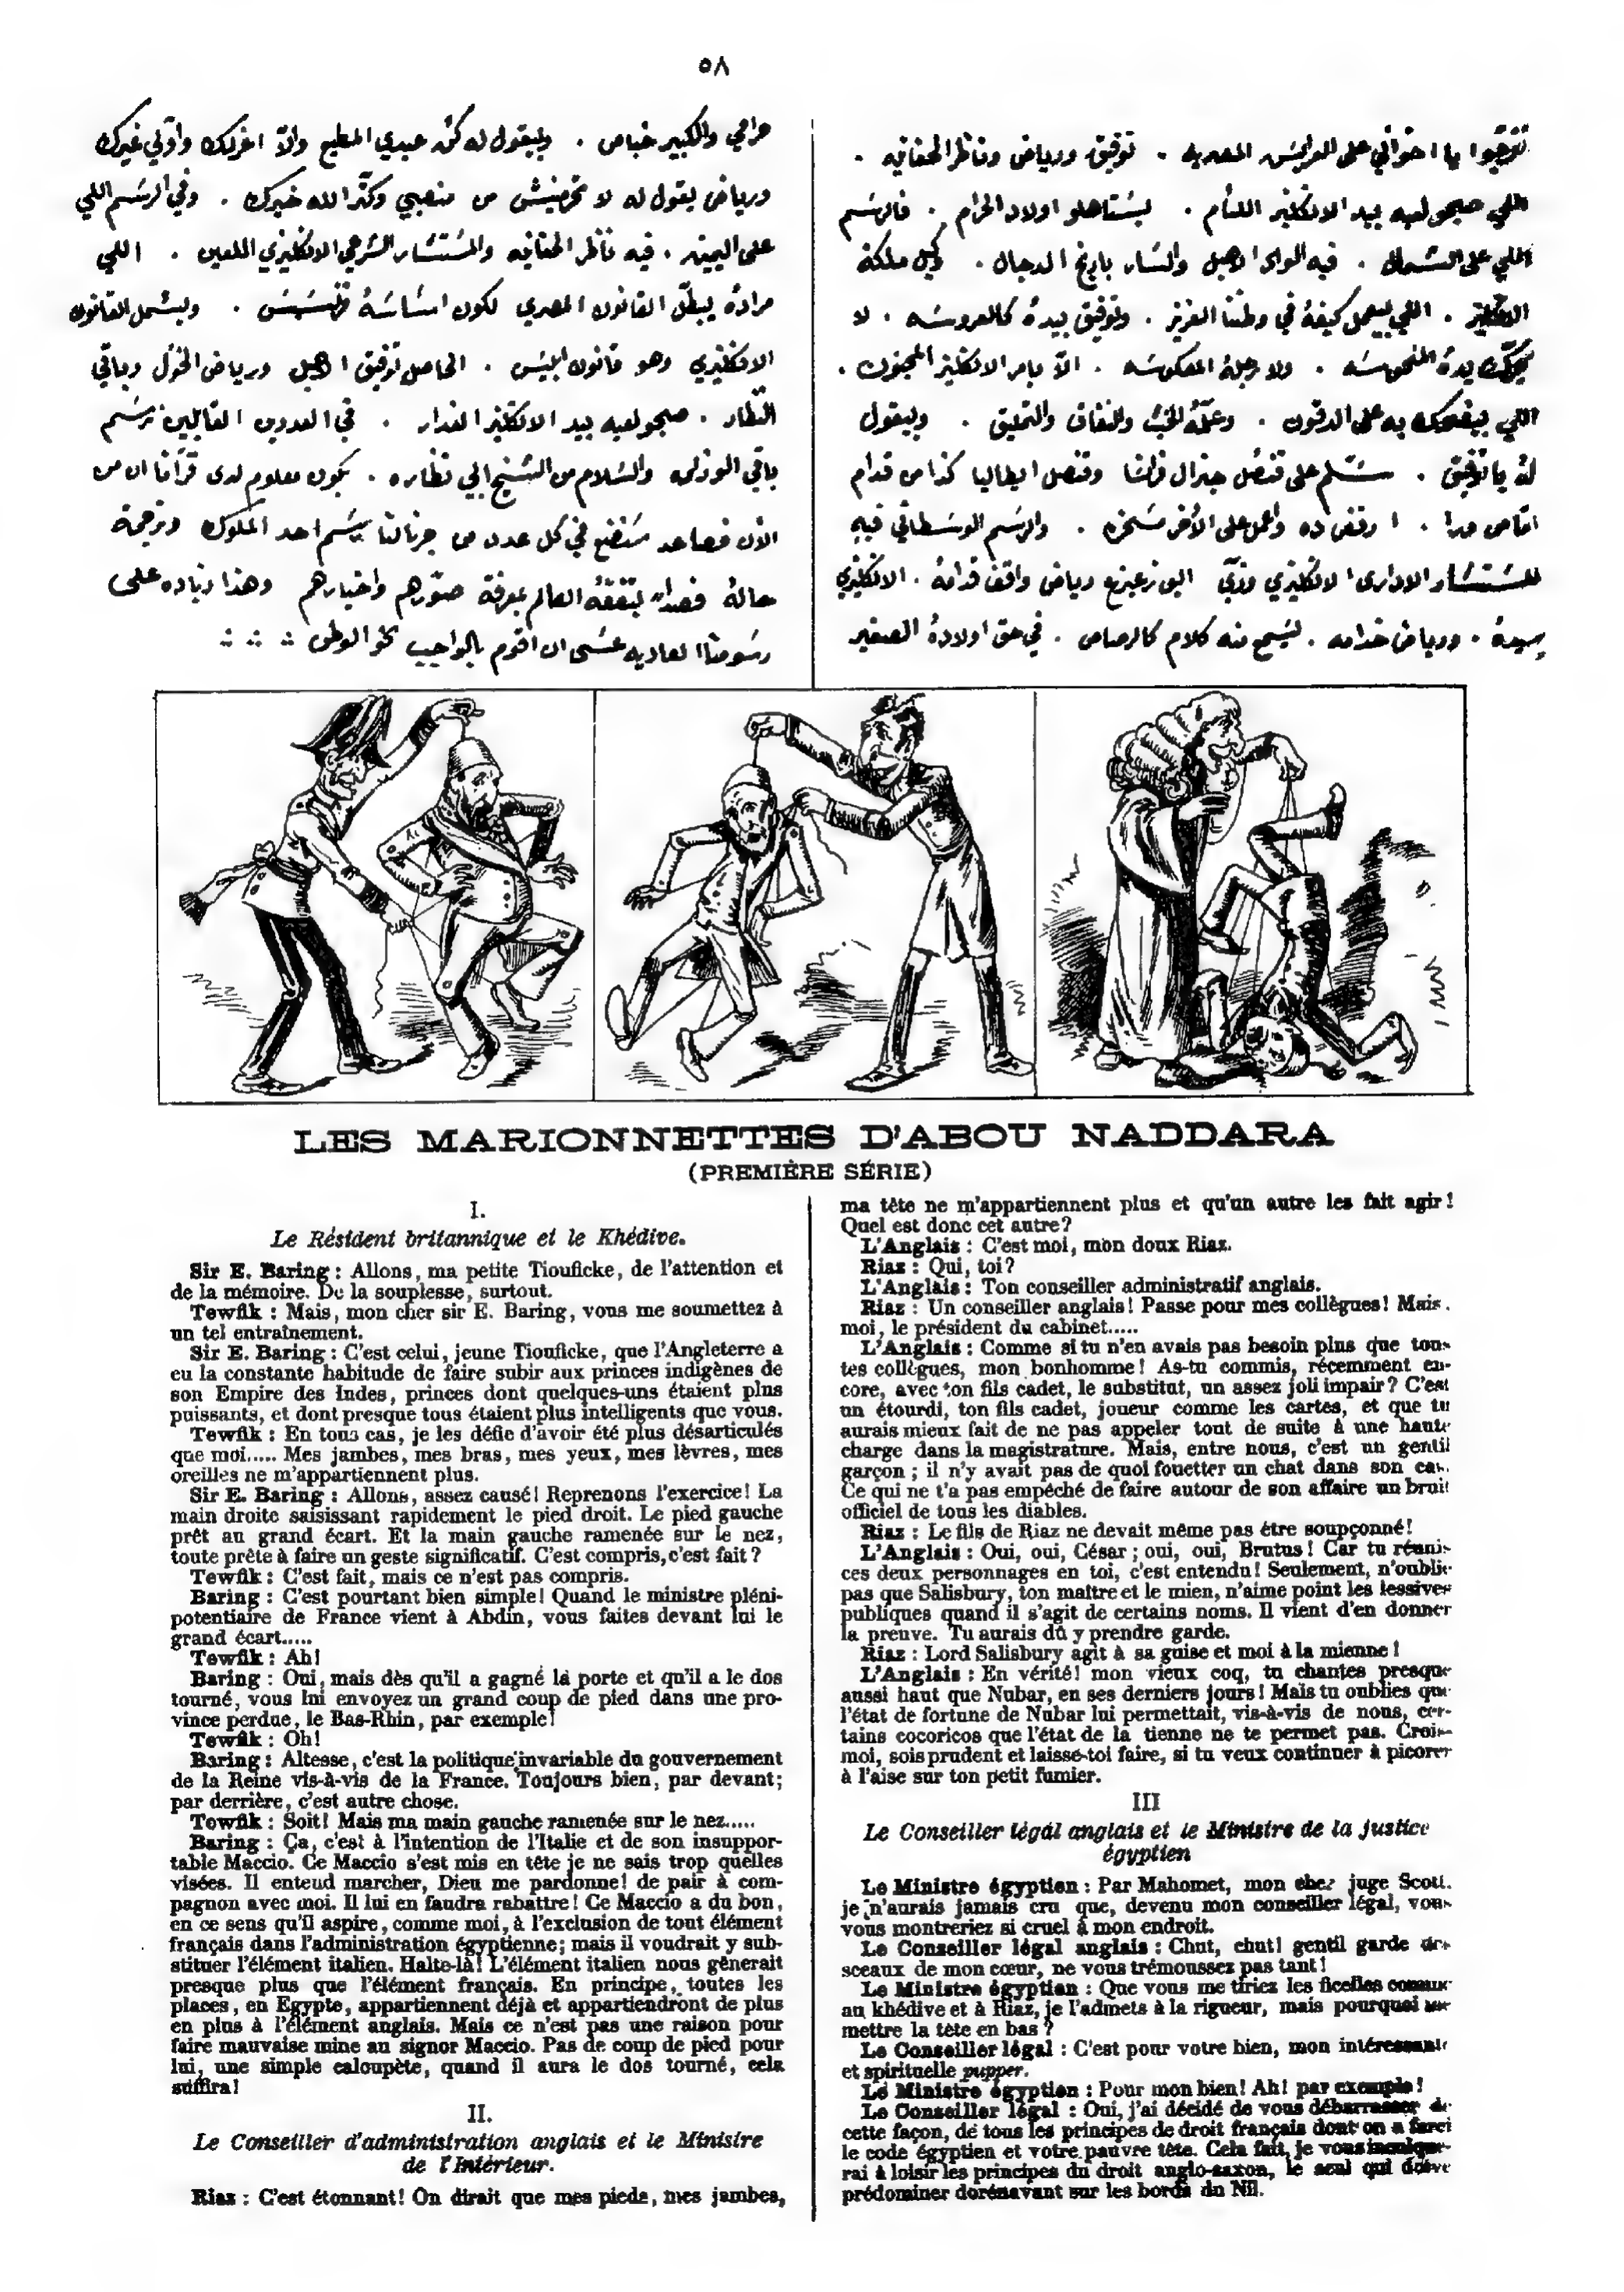 ٥٨
تفرّجوا يا اخواني على العرايس المصريه . توفيق ورياض وناظر الحقانيه .
اللي صبحو لعبه بيد الانكليز اللئام . يستاهلو اولاد الحرام . فالرسم
اللي على الشمال . فيه الواد الاهبل والسار بارنج الدجال . وكيل ملكة
الانكليز . اللي بيعمل كيفهُ في وطننا العزيز . وتوفيق بيده كالعروسه . لا
يحرّك يدهُ المنحوسه . ولا رجلهُ المعكوسه . الاّ بامر الانكليز المجنون .
اللي بيضحك به على الدقون . وعلّمهُ الخبث والنفاق والتمليق . وبيقول
لهُ يا توفيق . سلّم على قنصل جنرال فرانسا وقنصل ايطاليا كذا من قدام
امّا من ورا . ارفص ده واعمل على الآخر مسخره . والرسم الوسطاني فيه
المستشار الادارى الانكليزي وزيّ ابو زعيزع رياض واقف قدامهُ . الانكليزي
سيدهُ . ورياض خدامه . ليسمع منه كلام كالرصاص . في حق اولادهُ الصغير
حرامي والكبير خباص . وبيقول له كن عبدي المطيع والاّ اعزلك واولي غيرك
ورياض يقول له لا تحرمنيش من منصبي وكتّر الله خيرك . وفي الرسم اللي
على اليمين . فيه ناظر الحقانيه والمستشار الشرعي الانكليزي الملعين . اللي
مرادهُ يبطّل القانون المصري لكون اساسهُ فرنسيس . ويستعمل القانون
الانكليزي وهو قانون ابليس . الحاصل توفيق الاهبل ورياض الخول وباقي
النظار . صبحو لعبه بيد الانكليز الغدار . في العددين القابلين نرسم
باقي الوزلرا والسلام من الشيخ ابي نظاره . يكون معلوم لدى قرّأنا ان من
الآن فصاعد سنضع في كل عدد من جرنالنا رسم احد الملوك وترجمة
حالهُ قصداً بتفقّه العالم بمعرفة صوّرهم واخبارهم وهذا زياده على
رسومنا العاديه عسى ان اقوم بالواجب نحو الوطن
LES MARIONNETTES D'ABOU NADDARA
(PREMIÈRE SÉRIE)
I.
Le Résident britannique et le Khédive.
Sir E. Baring : Allons, ma petite Tiouficke, de l'attention et
de la mémoire. De la souplesse, surtout.
Tewfik : Mais, mon cher sir E. Baring, vous me soumettez à
un tel entraînement.
Sir E. Baring : C'est celui, jeune Tiouficke, que l'Angleterre a
eu la constante habitude de faire subir aux princes indigènes de
son Empire des Indes, princes dont quelques-uns étaient plus
puissants, et dont presque tous étaient plus intelligents que vous.
Tewfik : En tous cas, je les défie d'avoir été plus désarticulés
que moi..... Mes jambes, mes bras, mes yeux, mes lèvres, mes
oreilles ne m'appartiennent plus.
Sir E. Baring : Allons, assez causé! Reprenons l'exercice! La
main droite saisissant rapidement le pied droit. Le pied gauche
prêt au grand écart. Et la main gauche ramenée sur le nez,
toute prête à faire un geste significatif. C'est compris, c'est fait ?
Tewfik : C'est fait, mais ce n'est pas compris.
Baring : C'est pourtant bien simple! Quand le ministre pléni-
potentiaire de France vient à Abdin, vous faites devant lui le
grand écart.....
Tewfik : Ah!
Baring : Oui, mais dès qu'il a gagné la porte et qu'il a le dos
tourné, vous lui envoyez un grand coup de pied dans une pro-
vince perdue, le Bas-Rhin, par exemple!
Tewfik : Oh!
Baring : Altesse, c'est la politique invariable du gouvernement
de la Reine vis-à-vis de la France. Toujours bien, par devant;
par derrière, c'est autre chose.
Tewfik : Soit! Mais ma main gauche ramenée sur le nez.....
Baring : Ça, c'est à l'intention de l'Italie et de son insuppor-
table Maccio. Ce Maccio s'est mis en tête je ne sais trop quelles
visées. Il entend marcher, Dieu me pardonne! de pair à com-
pagnon avec moi. Il lui en faudra rabattre! Ce Maccio a du bon,
en ce sens qu'il aspire, comme moi, à l'exclusion de tout élément
français dans l'administration égyptienne; mais il voudrait y sub-
stituer l'élément italien. Halte-là! L'élément italien nous gênerait
presque plus que l'élément français. En principe, toutes les
places, en Egypte, appartiennent déjà et appartiendront de plus
en plus à l'élément anglais. Mais ce n'est pas une raison pour
faire mauvaise mine au signor Maccio. Pas de coup de pied pour
lui, une simple caloupète, quand il aura le dos tourné, cela
suffira!
II.
Le Conseiller d'administration anglais et le Ministre
de l'Intérieur.
Riaz : C'est étonnant! On dirait que mes pieds, mes jambes,
ma tête ne m'appartiennent plus et qu'un autre les fait agir!
Quel est donc cet autre?
L'Anglais : C'est moi, mon doux Riaz.
Riaz : Qui, toi?
L'Anglais : Ton conseiller administratif anglais.
Riaz : Un conseiller anglais! Passe pour mes collègues! Mais.
moi, le président du cabinet.....
L'Anglais : Comme si tu n'en avais pas besoin plus que tous
tes collègues, mon bonhomme! As-tu commis, récemment en-
core, avec ton fils cadet, le substitut, un assez joli impair? C'est
un étourdi, ton fils cadet, joueur comme les cartes, et que tu
aurais mieux fait de ne pas appeler tout de suite à une haute
charge dans la magistrature. Mais, entre nous, c'est un gentil
garçon ; il n'y avait pas de quoi fouetter un chat dans son cas.
Ce qui ne t'a pas empêché de faire autour de son affaire un bruit
officiel de tous les diables.
Riaz : Le fils de Riaz ne devait même pas être soupçonné!
L'Anglais : Oui, oui, César ; oui, oui, Brutus! Car tu réunis
ces deux personnages en toi, c'est entendu! Seulement, n'oublie
pas que Salisbury, ton maître et le mien, n'aime point les lessives
publiques quand il s'agit de certains noms. Il vient d'en donner
la preuve. Tu aurais dû y prendre garde.
Riaz : Lord Salisbury agit à sa guise et moi à la mienne!
L'Anglais : En vérité! mon vieux coq, tu chantes presque
aussi haut que Nubar, en ses derniers jours! Mais tu oublies que
l'état de fortune de Nubar lui permettait, vis-à-vis de nous, cer-
tains cocoricos que l'état de la tienne ne te permet pas. Crois-
moi, sois prudent et laisse-toi faire, si tu veux continuer à picorer
à l'aise sur ton petit fumier.
III
Le Conseiller légal anglais et le Ministre de la justice
égyptien
Le Ministre égyptien : Par Mahomet, mon cher juge Scott.
je n'aurais jamais cru que, devenu mon conseiller légal, vous
vous montreriez si cruel à mon endroit.
Le Conseiller légal anglais : Chut, chut! gentil garde des
sceaux de mon cœur, ne vous trémoussez pas tant!
Le Ministre égyptien : Que vous me tiriez les ficelles comme
au khédive et à Riaz, je l'admets à la rigueur, mais pourquoi me
mettre la tête en bas ?
Le Conseiller légal : C'est pour votre bien, mon intéressante
et spirituelle pupper.
Le Ministre égyptien : Pour mon bien! Ah! par exemple!
Le Conseiller légal : Oui, j'ai décidé de vous débarrasser de
cette façon, de tous les principes de droit français dont on a farci
le code égyptien et votre pauvre tête. Cela fait, je vous inculque-
rai à loisir les principes du droit anglo-saxon, le seul qui doive
prédominer dorénavant sur les bords du Nil.